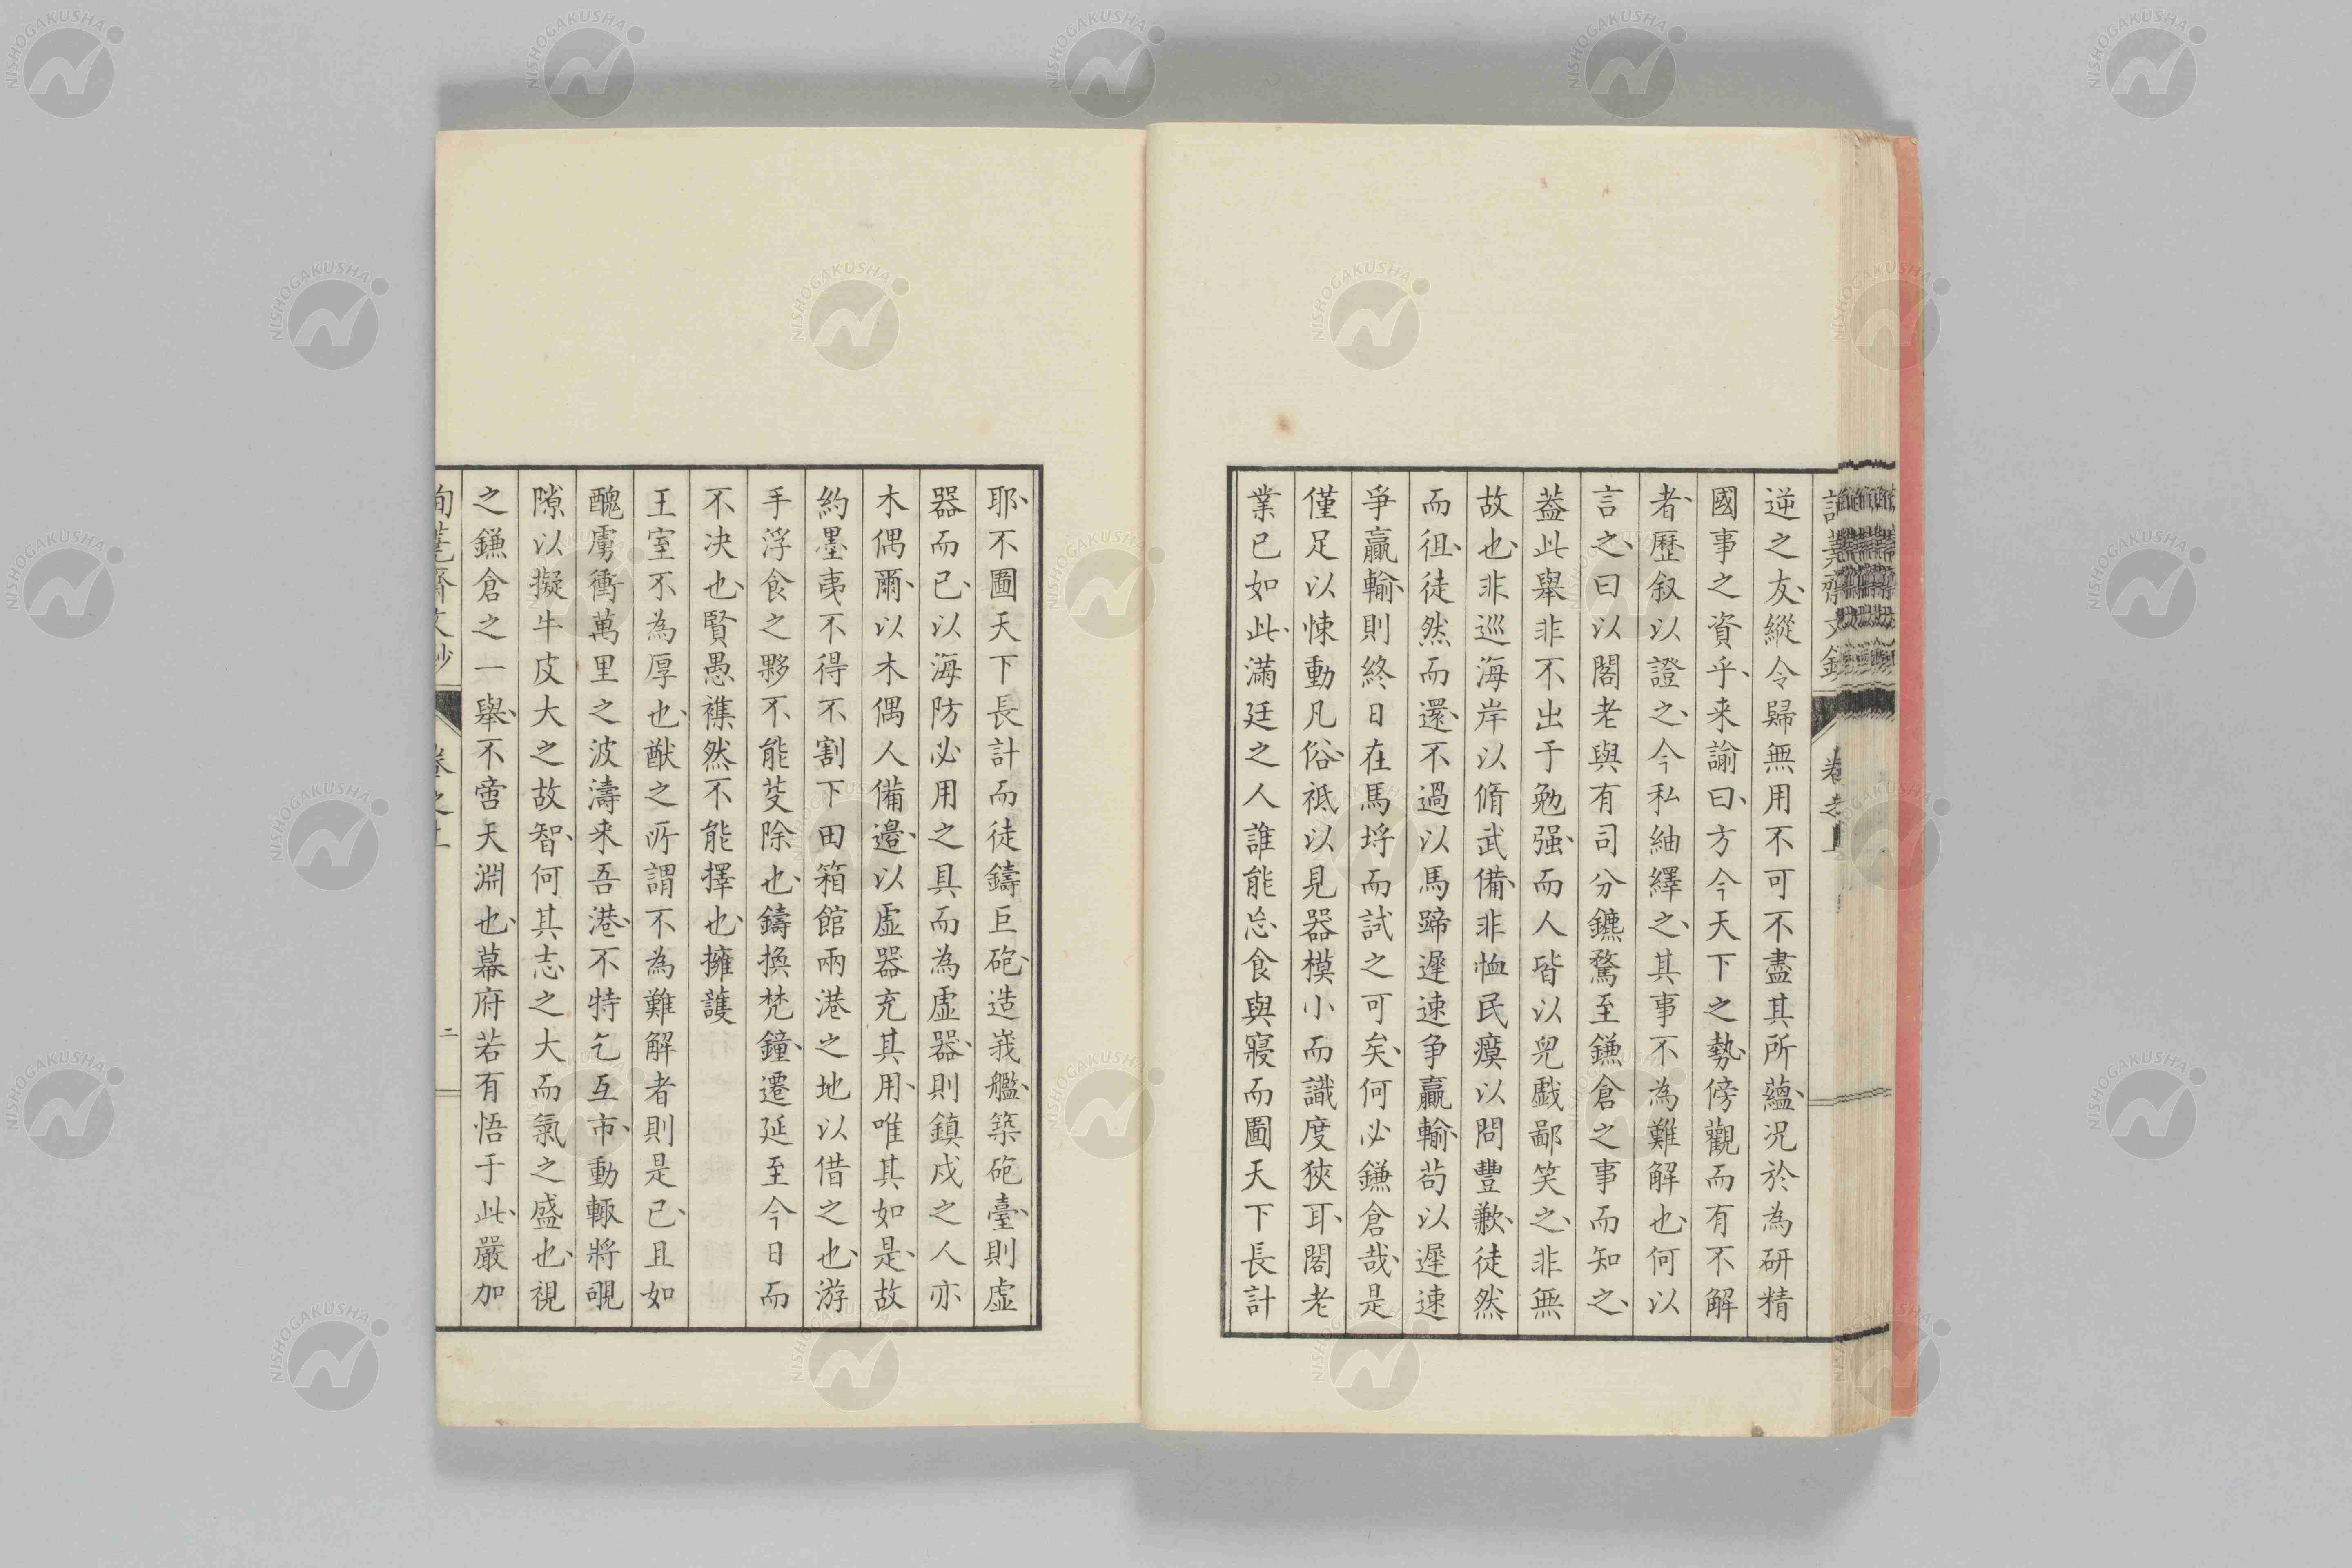 逆之友、縱令歸無用不可不盡其所蘊、况於為研精
國事之資乎、来諭曰、方今天下之勢、傍觀而有不解
者、歷叙以證之、今私紬繹之、其事不為難解也、何以
言之、曰以閣老與有司分鑣騖至鎌倉之事而知之、
葢此舉非不出于勉强、而人皆以兒戲鄙笑之、非無
故也、非巡海岸以脩武備、非恤民瘼以問豐歉、徒然
而徂、徒然而還、不過以馬蹄遲速争贏輸、苟以遲速
爭贏輸、則終日在馬埒而試之可矣、何必鎌倉哉、是
僅足以悚動凡俗、祗以見器模小而識度狹耳、閣老
業已如此、滿廷之人誰能忘食與寢而圖天下長計
耶、不圖天下長計而徒鑄巨砲、造峩艦、築砲臺、則虛
器而已、以海防必用之具而為虛器、則鎮戍之人亦
木偶爾、以木偶人備邊、以虛器充其用、唯其如是、故
約墨夷不得不割下田箱館兩港之地以借之也、游
手浮食之夥不能芟除也、鑄換梵鐘、遷延至今日而
不决也、賢愚襍然不能擇也、擁護
王室不為厚也、猷之所謂不為難解者則是已、且如
醜虜衝萬里之波濤来吾港、不特乞互市、動輙將覗
隙以擬牛皮大之故智、何其志之大而氣之盛也、視
之鎌倉之一舉、不啻天淵也、幕府若有悟于此、嚴加
二
NISHOGAKUSHA